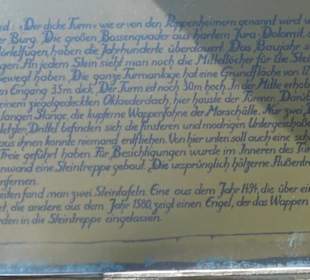 „Der dicke Turm" wie er von den Pappenheimern genannt wird
Burg. Die großen Bossenquader aus hartem Jura-Dolomit
Mörtelfugen, haben die Jahrhunderte überdauert. Das Baujahr
An jedem Stein sieht man noch die Mittellöcher für die
bewegt haben. Die ganze Turmanlage hat eine Grundfläche von 12
Eingang 3,5m dick. Der Turm ist noch 30m hoch. In der Mitte erhob
einem ziegelgedeckten Oktaederdach, hier hauste der Türmer.
langen Stange, die kupferne Wappenfahne der Marschälle. Nur zwei
Drittel befinden sich die finsteren und modrigen
aus ihnen konnte niemand entfliehen. Von hier unten soll auch eine
Freie geführt haben. Für Besichtigungen wurde im Inneren des
eine Steintreppe gebaut. Die ursprünglich hölzerne
entfernen.
fand man zwei Steintafeln. Eine aus dem Jahr 1494, die über
die andere aus dem Jahr 1580, zeigt einen Engel, der das Wappen
in die Steintreppe eingelassen.